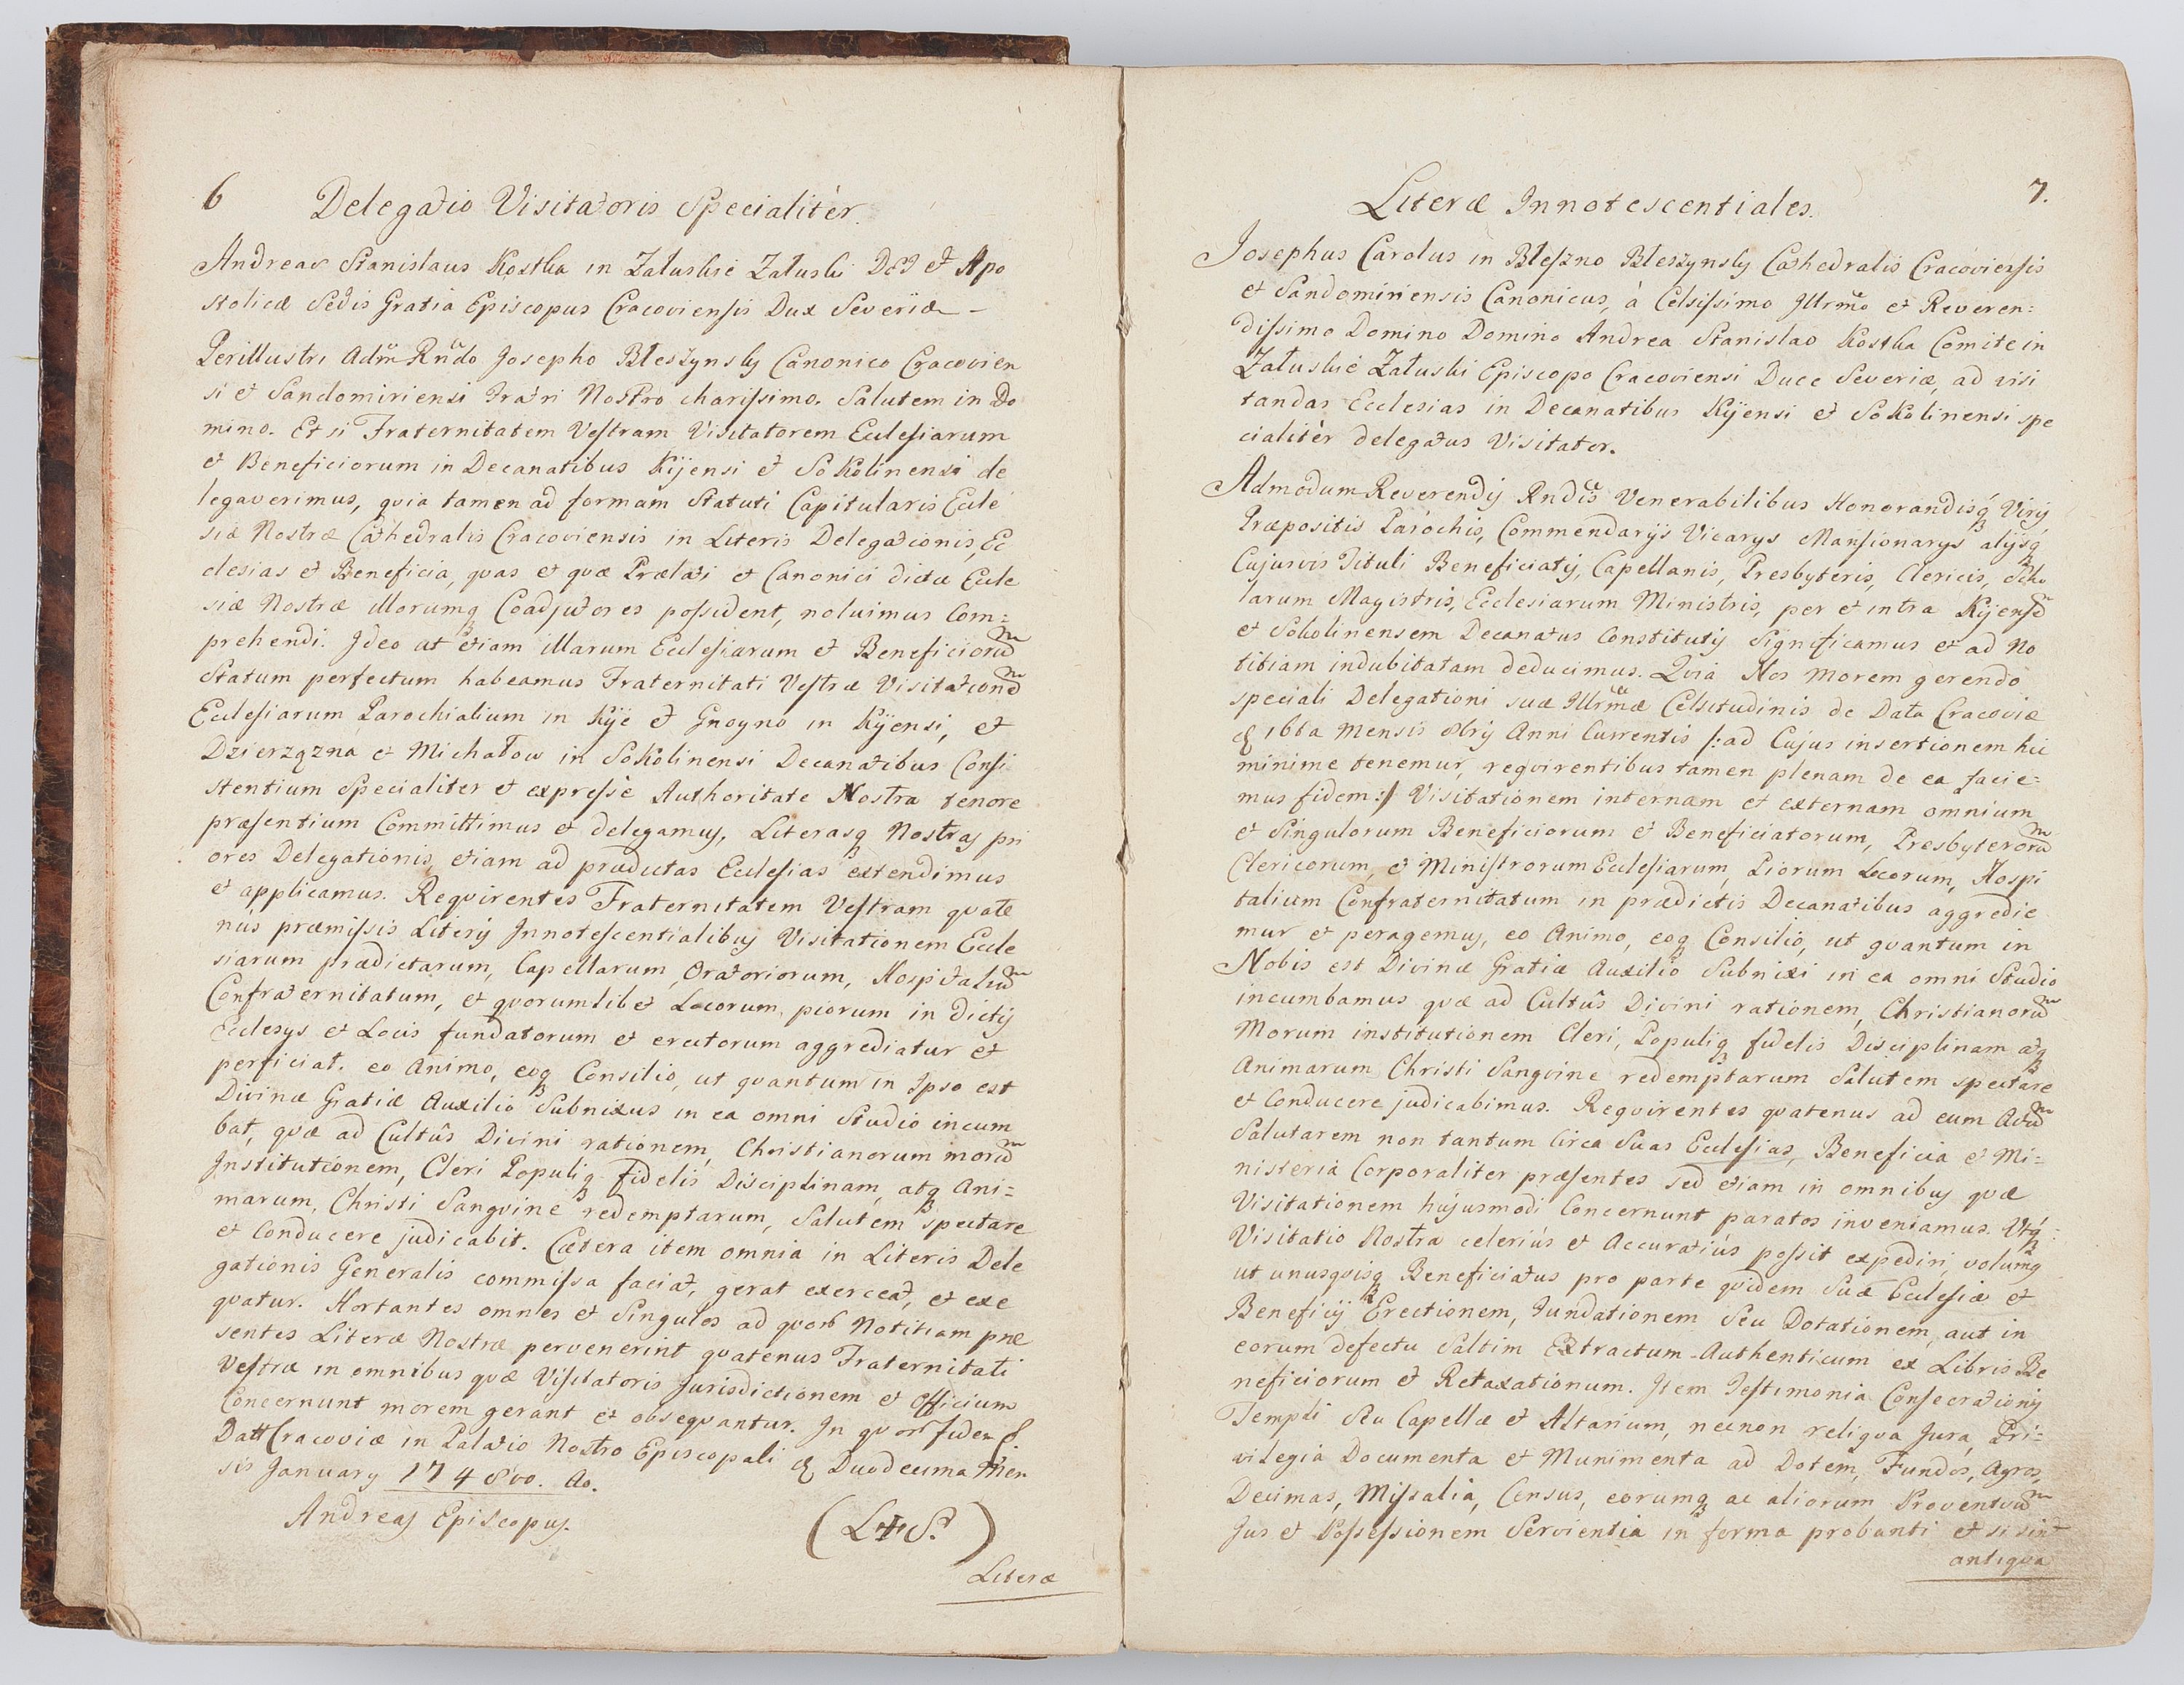 6 Delegatio Visitatoris Specialitèr.
Andreas Stanislaus Kostka in Załuskie Załuski Dei et Apo
stolicæ Sedis Gratia Episcopus Cracoviensis Dux Severiæ –
Perillustri Adm Rndo Josepho Błeszynsky Canonico Cracovien
si et Sandomiriensi Fratri Nostro charissimo. Salutem in Do
mino. Et si Fraternitatem Vestram Visitatorem Ecclesiarum
et Beneficiorum in Decanatibus Kijensi et Sokolinensi de
legaverimus, qvia tamen ad formam Statuti Capitularis Eccle
siæ Nostræ Cathedralis Cracoviensis in Literis Delegationis, Ec
clesias et Beneficia, qvas et qvæ Prælati et Canonici dictæ Eccle
siæ Nostræ illorumq Coadjutores possident, noluimus Com=
prehendi. Ideo ut etiam illarum Ecclesiarum et Beneficiorū
Statum perfectum habeamus Fraternitati Vestræ Visitationē
Ecclesiarum Parochialium in Kije et Gnoyno in Kijensi, et
Dzierzązna et Michałow in Sokolinensi Decanatibus Consi
stentium Specialiter et expressè Authoritate Nostra tenore
præsentium Committimus et delegamus, Literasq Nostras pri
ores Delegationis, etiam ad prædictas Ecclesias extendimus
et applicamus. Reqvirentes Fraternitatem Vestram qvate
nùs præmissis Literis Innotescentialibus Visitationem Eccle
siarum prædictarum, Capellarum, Oratoriorum, Hospitaliū
Confraternitatum, et qvorumlibet Locorum piorum in dictis
Ecclesys et Locis fundatorum et erectorum aggrediatur et
perficiat. eo Animo, eoq Consilio, ut qvantum in Ipso est
Divinæ Gratiæ Auxilio Subnixus in ea omni Studio incum
bat, qvæ ad Cultûs Divini rationem, Christianorum morū
Institutionem, Cleri Populiq fidelis Disciplinam, atq Ani=
marum, Christi Sangvine redemptarum, Salutem spectare
et Conducere judicabit. Cætera item omnia in Literis Dele
gationis Generalis commissa faciat, gerat exerceat, et exe
qvatur. Hortantes omnes et Singulos ad qvorū Notitiam præ
sentes Literæ Nostræ pervenerint qvatenus Fraternitati
Vestræ in omnibus qvæ Visitatoris Jurisdictionem et Officium
Concernunt morem gerant et obseqvantur. In qvorū fidem
Datt Cracoviæ in Palatio Nostro Episcopali Duodecima Men
sis January 1748vo. Ao.
Andreas Episcopus.
(L+S.)
Literæ
7.
Literæ Innotescentiales.
Josephus Carolus in Bleszno Błeszynsky Cathedralis Cracoviensis
et Sandomiriensis Canonicus, à Celsissimo Illrmo et Reveren=
dissimo Domino Domino Andrea Stanislao Kostka Comite in
Załuskie Załuski Episcopo Cracoviensi Duce Severiæ, ad visi
tandas Ecclesias in Decanatibus Kijensi et Sokolinensi spe
cialitèr delegatus Visitator.
Admodum Reverendis Rndis Venerabilibus Honorandisq Viris
Præpositis Paròchis, Commendarijs Vicarys Mansionarys alijsq
Cujusvis Tituli Beneficiatis, Capellanis, Presbyteris, Clericis, Scho
larum Magistris, Ecclesiarum Ministris, per et intra Kijensē
et Sokolinensem Decanatus Constitutis Significamus et ad No
titiam indubitatam deducimus. Qvia Nos morem gerendo
speciali Delegationi suæ Illrmæ Celsitudinis de Data Cracoviæ
16ta Mensis 8bris Anni Currentis /:ad Cujus insertionem hic
minime tenemur, reqvirentibus tamen plenam de ea facie=
mus fidem:/ Visitationem internam et externam omnium
et Singulorum Beneficiorum et Beneficiatorum, Presbyterorū
Clericorum, et Ministrorum Ecclesiarum, Piorum Locorum, Hospi
talium Confraternitatum in prædictis Decanatibus aggredie
mur et peragemus, eo Animo, eoq Consilio, ut qvantum in
Nobis est Divinæ Gratiæ Auxilio Subnixi in ea omni Studio
incumbamus qvæ ad Cultûs Divini rationem, Christianorū
Morum institutionem Cleri, Populiq fidelis Disciplinam atq
Animarum Christi Sangvine redemptarum Salutem spectare
et Conducere judicabimus. Reqvirentes qvatenus ad eum Actū
Salutarem non tantum Circa Suas Ecclesias, Beneficia et Mi=
nisteria Corporaliter præsentes sed etiam in omnibus qvæ
Visitationem hújusmodi Concernunt paratos inveniamus. Utq
Visitatio Nostra celeriùs et Accuratiùs possit expediri, volumq
ut unusqvisq Beneficiatus pro parte qvidem Suæ Ecclesiæ et
Beneficij Erectionem, Fundationem Seu Dotationem, aut in
eorum defectu Saltim Extractum Authenticum ex Libris Be
neficiorum et Retaxationum. Item Testimonia Consecrationis
Templi Seu Capellæ et Altarium, necnon reliqva Jura, Pri=
vilegia Documenta et Munimenta ad Dotem, Fundos, Agros,
Decimas, Missalia, Census, eorumq ac aliorum Proventuū
Jus et Possessionem Servientia in forma probanti et si sint
antiqva